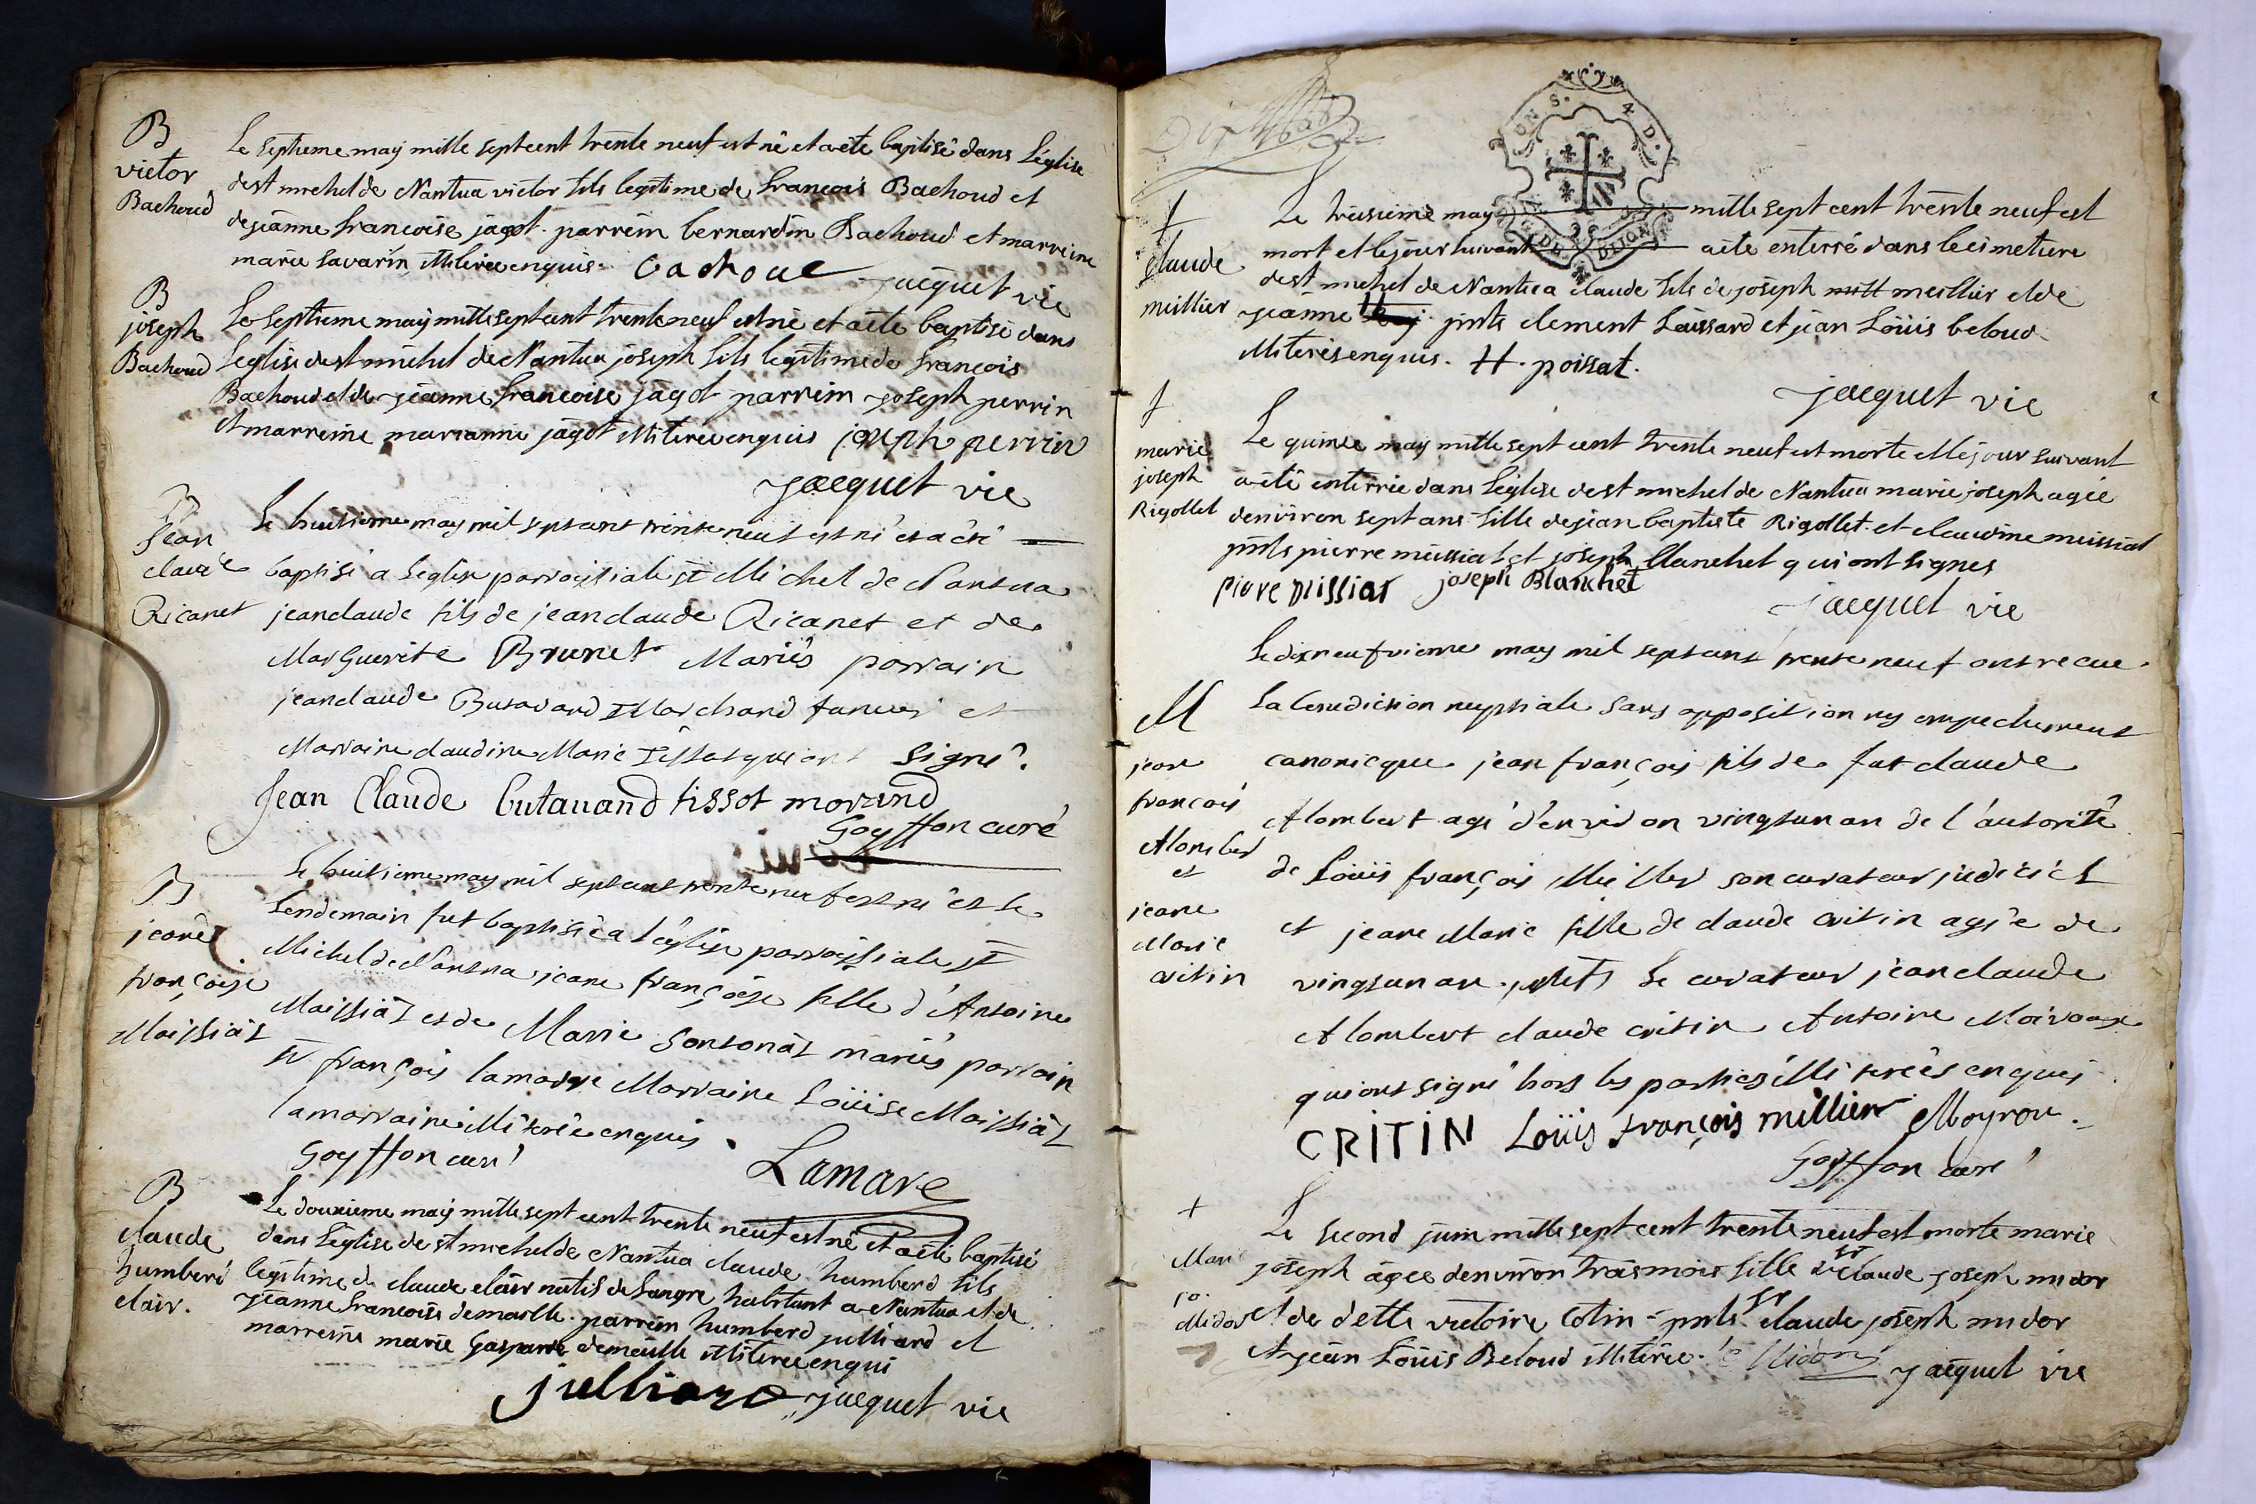 B
victor
Bachoud
Le septieme may mille sept cent trente neuf est né et a été baptisé dans L'église
de st michel de Nantua victor fils legitime de francois Bachoud et
de jeanne francoise jagot. parrein bernardin Bachoud et marreine
marie savarin illiteree enquis. Bachoud
jacquet vic
B
joseph
Bachoud
Le septieme may mille sept cent trente neuf est né et a été baptisé dans
Leglise de st michel de Nantua joseph fils legitime de francois
Bachoud et de jeanne francoise jagot parrein joseph perrin
et marreine marianne jagot illiteree enquis joseph perrin
jacquet vic
B
jean
claude
Ricanet
Le huitieme may mil sept cent trente neuf est né et a été
baptisé a l'eglise parroissiale st Michel de Nantua
jean claude fils de jean claude Ricanet et de
Marguerite Brunet Mariés parrain
jean claude Butavand Marchand taneur et
Marraine claudine Marie Tissot qui ont signé.
Jean Claude butauand tissot morand
Goyffon curé
B
jeane
françoise
Maissiat
Le huitieme may mil sept cent trente neuf est né et le
lendemain fut baptisée a l'église parroissiale st
Michel de Nantua jeane françoise fille d'Antoine
Maissiat et de Marie Sontonat mariés parrain
sr françois lamare Marraine Loüise Maissiat
la marraine illiterée enquis.
Goyffon curé
Lamare
B
claude
humberd
clair.
Le douxieme may mille sept cent trente neuf est né et a été baptisé
dans L'église de st michel de Nantua claude humberd fils
legitime de claude clair natif de Langre habitant a Nantua et de
jeanne francoise demaille. parrein humberd julliard et
marreine marie gasparde demaille illiteree enqui
julliard jacquet vic
†
claude
meillier
Le treisieme may mille sept cent trente neuf est
mort et le jour suivant a été enterré dans le cimetiere
de st michel de Nantua claude fils de joseph meillier et de
jeanne pnts clement Laissard et jean Loüis beloud
illiterés enquis. H. poissat.
jacquet vic
†
marie
joseph
Rigollet
Le quinze may mille sept cent trente neuf est morte et le jour suivant
a été enterrée dans L'église de st michel de Nantua marie joseph agée
d'environ sept ans fille de jean baptiste Rigollet et claudine meissiat
pnts pierre meissiat et joseph blanchet qui ont signes
piere missiat joseph Blanchet
jacquet vic
M
jean
francois
Alombert
et
jeane
Marie
critin
Le dix neufvieme may mil sept cent trente neuf ont receue
La benediction nuptiale sans opposition ny empechement
canonicque jean françois fils de fut claude
Alombert agé d'environ vingt un an de l'autorité
de Loüis françois Millier son curateur judiciel
et jeane Marie fille de claude critin agée de
vingt un an. pnts Le curateur jean claude
Alombert claude critin Antoine Moiroux
qui ont signé hors les parties illiterées enquis
CRITIN Loüis françois millier Moyrou.
Goyffon curé
+
Mari
jo.
Midor
Le second juin mille sept cent trente neuf est morte marie
joseph agée d'environ trois mois fille de sr claude joseph midor
et de dette victoire Cotin - pnts sr claude joseph midor
et jean Loüis Beloud illiterée. Midor jacquet vic